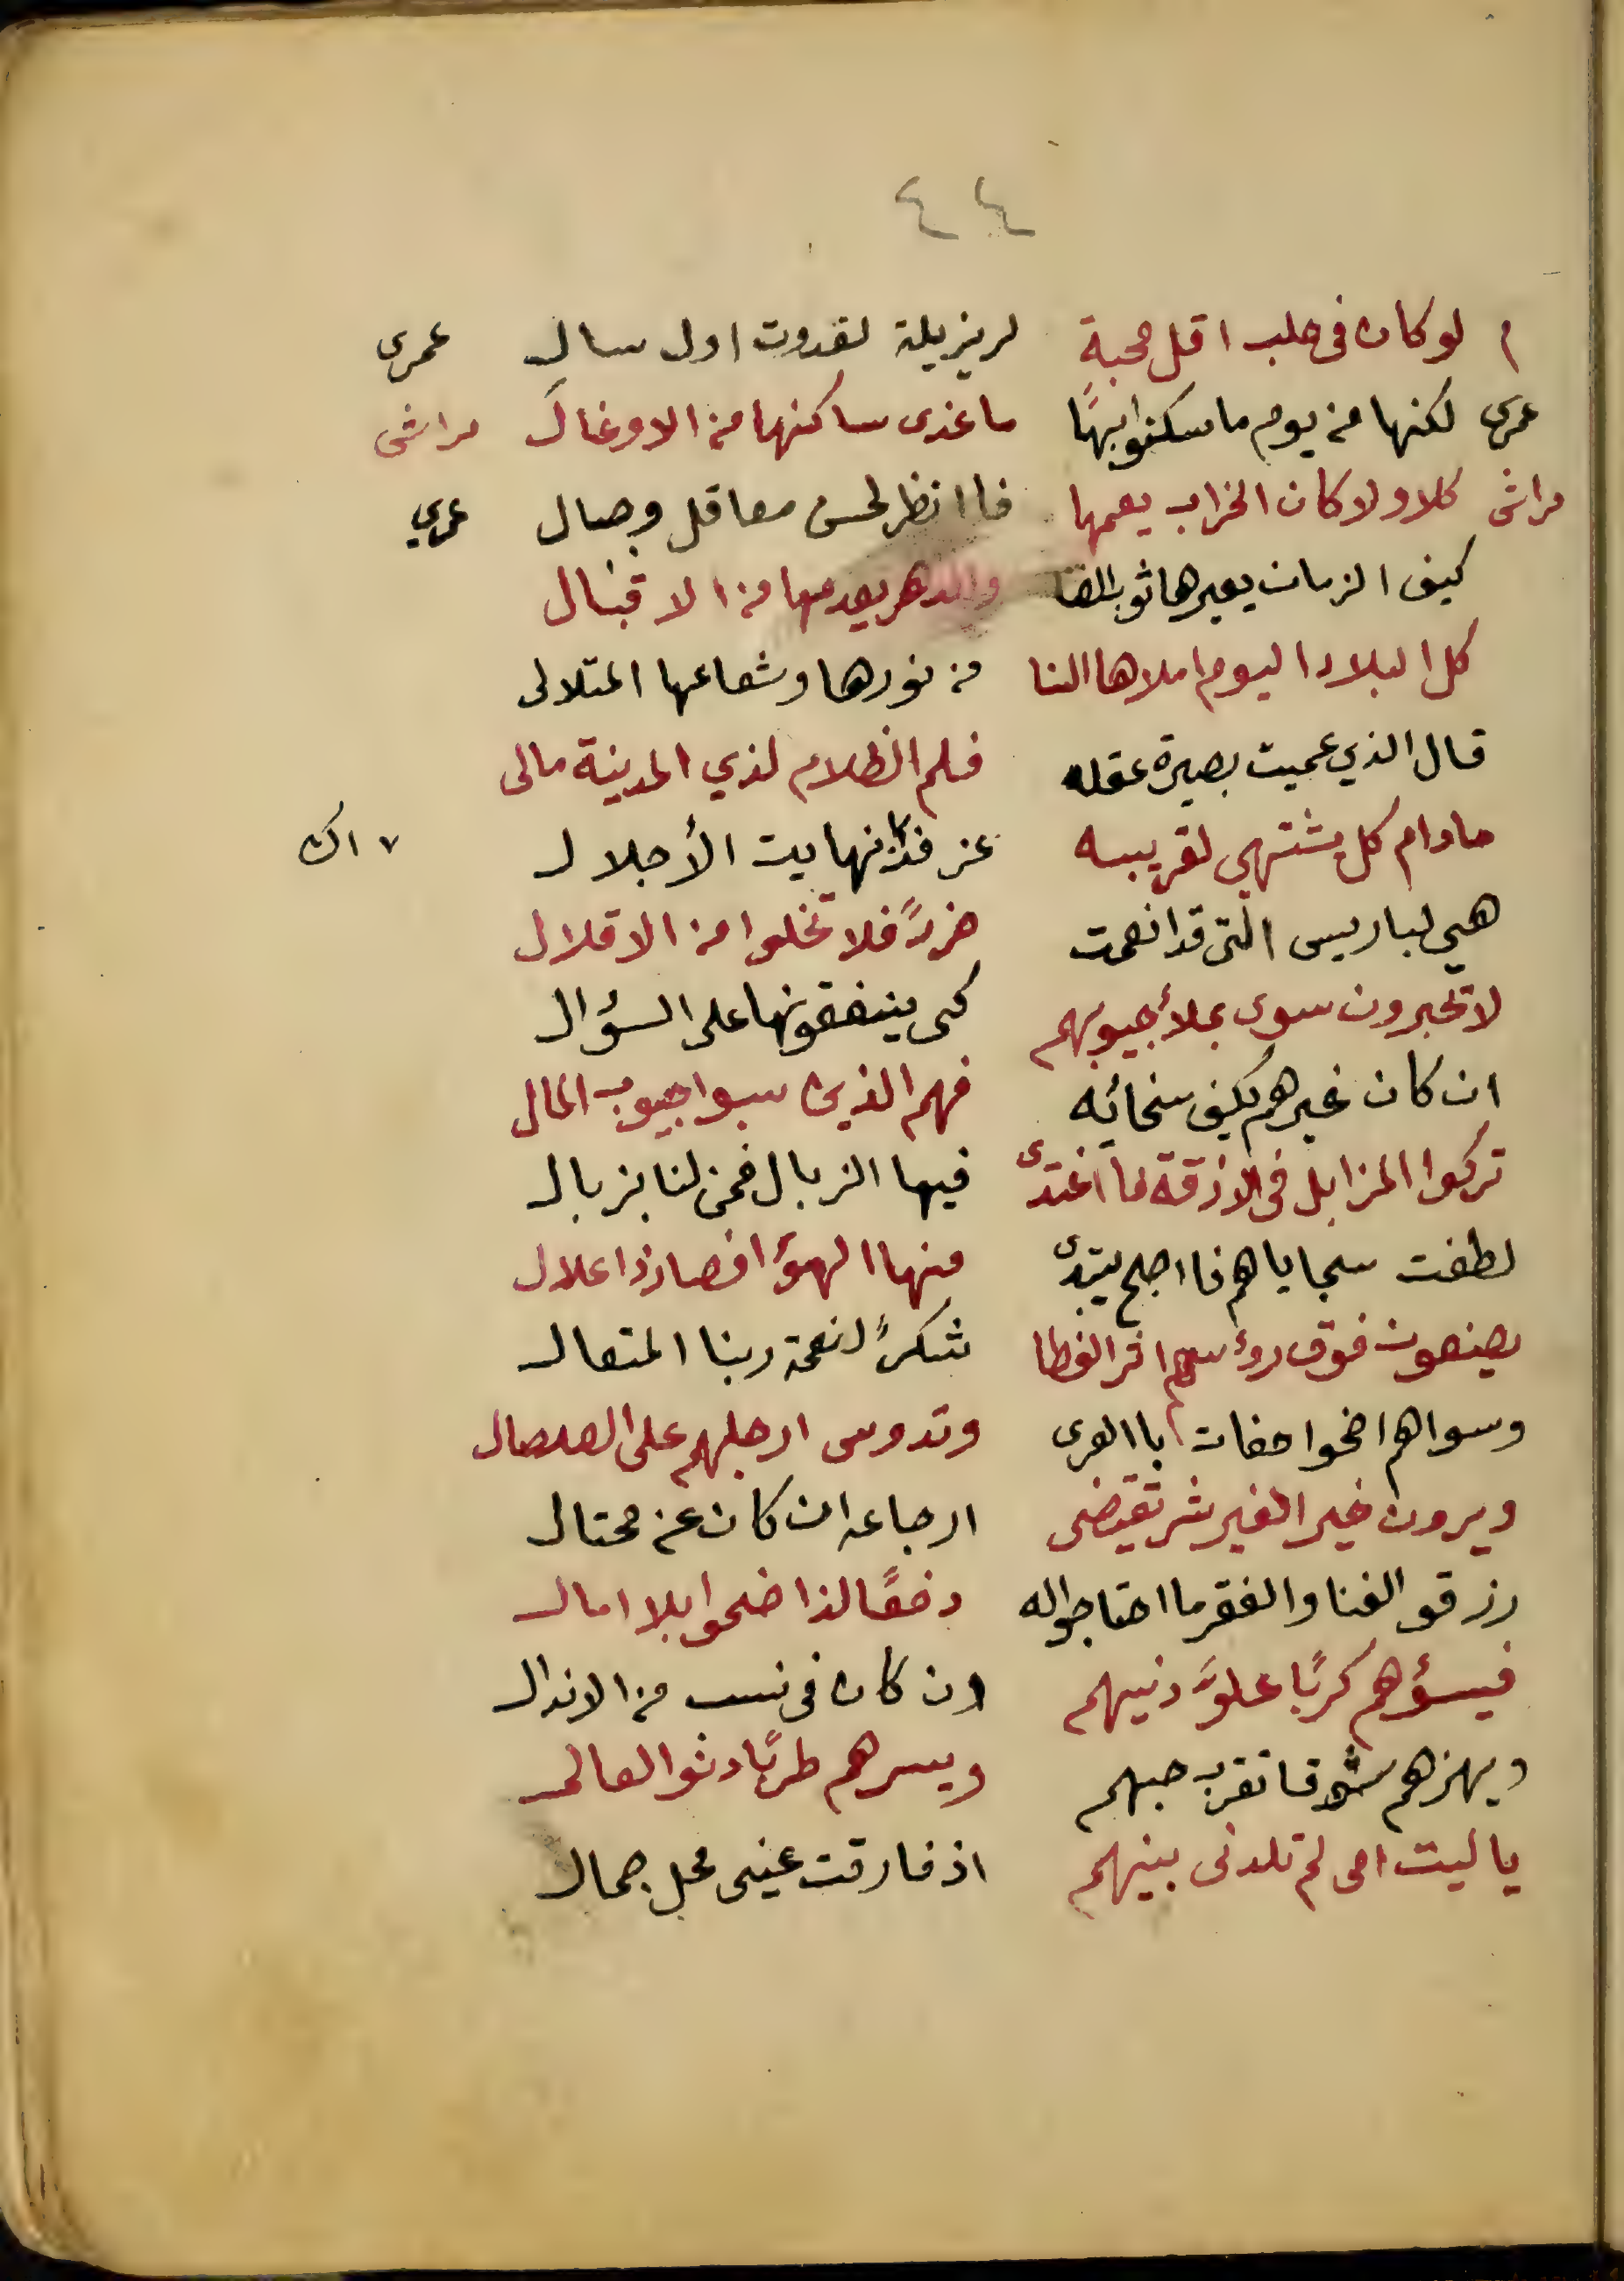 ٤٤
م لو كان فى حلب اقل محبة لربزيلة لغدوت اول سال عمرى
عمرى لكنها من يوم ما سكنوا بهًا ما عذى ساكنها من الاوغال مراشى
مراشى كلا ولا كان الخراب يعمها فاانظر لحسن معاقل وجبال عمري
كيف الزمان يعيرها ثوب والدهر يعدمها من الاقبال
كل البلاد اليوم املاها النا من نورها وشعاعها المتلالى
قال الذي عميت بصيرة عقله فلم الظلام لذي المدينة مالى
مادام كل يشتهى لقريبه عز نهايت الأجلال
هي لباريس التى قد انعمت ضررً فلا تخلوا من الاقلال
لا تخبرون سوى بملأ جيوبهم كى ينفقونها على السؤال
ان كان غيرهم بكيف سخائه فهم الذين سبوا جيوب المال
تركوا المزابل فى الازقة ما اغتدى فيها الزبال فمن لنا بزبال
لطفت سجاياهم فااصلح يبتدى منها الهؤا فصار ذا علال
يضعون فوق رؤسهم الغطا شكرً لنعمة ربنا المتعال
وسواهم اضحوا حفات باالعرى وتدوس ارجلهم على الصلصال
ويرون خير الغير شر تقتضى ارجاعه ان كان عن محتال
رزقو الغنا والفقر ما احتاجوا له دفعًا لذا ضحوا بلا امال
فيسؤهم كربًا علوّ دنيهم ان كان فى نسب من الانذال
ويهزهم شوقا تقرب حبهم ويسرهم طربًا دنوا العالى
يا ليت امى لم تلدنى بينهم اذ فارقت عينى محل جمال